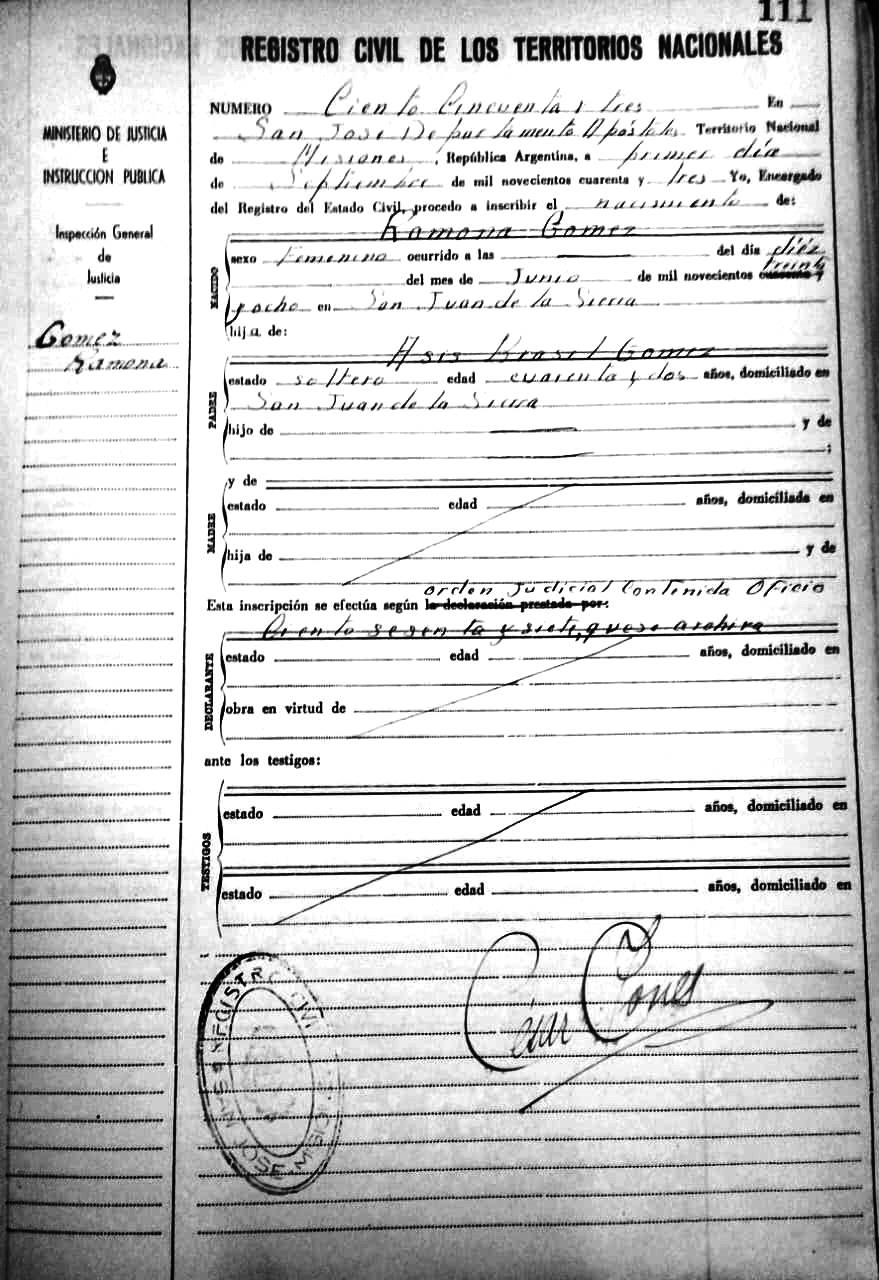 111
REGISTRO CIVIL DE LOS TERRITORIOS NACIONALES
MINISTERIO DE JUSTICIA
E
INSTRUCCION PUBLICA
Inspección General
de
Justicia
Gomez
Ramona
NUMERO Ciento Cincuenta y tres En
San José Departamento Apóstoles Territorio Nacional
de Misiones, República Argentina, a primer día
de Septiembre de mil novecientos cuarenta y tres Yo, Encargado
del Registro del Estado Civil, procedo a inscribir el nacimiento de:
Ramona Gomez
NACIDO
sexo Femenino ocurrido a las del día diéz
treinta
del mes de Junio de mil novecientos cuarenta y
y ocho en San Juan de la Sierra
hija de:
Asis Brasil Gomez
PADRE
estado soltero edad cuarenta y dos años, domiciliado en
San Juan de la Sierra
hijo de y de
;
MADRE
y de
estado edad años, domiciliada en
hija de y de
orden Judicial Contenida Oficio
Esta inscripción se efectúa según la declaración prestada por:
Ciento sesenta y siete, que se archiva
DECLARANTE
estado edad años, domiciliado en
obra en virtud de
ante los testigos:
TESTIGOS
estado edad años, domiciliado en
estado edad años, domiciliado en
REGISTRO CIVIL
SAN JOSE
César